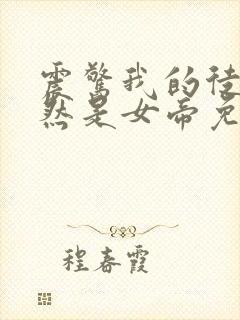 震惊我的徒
然是女帝免
程春霞